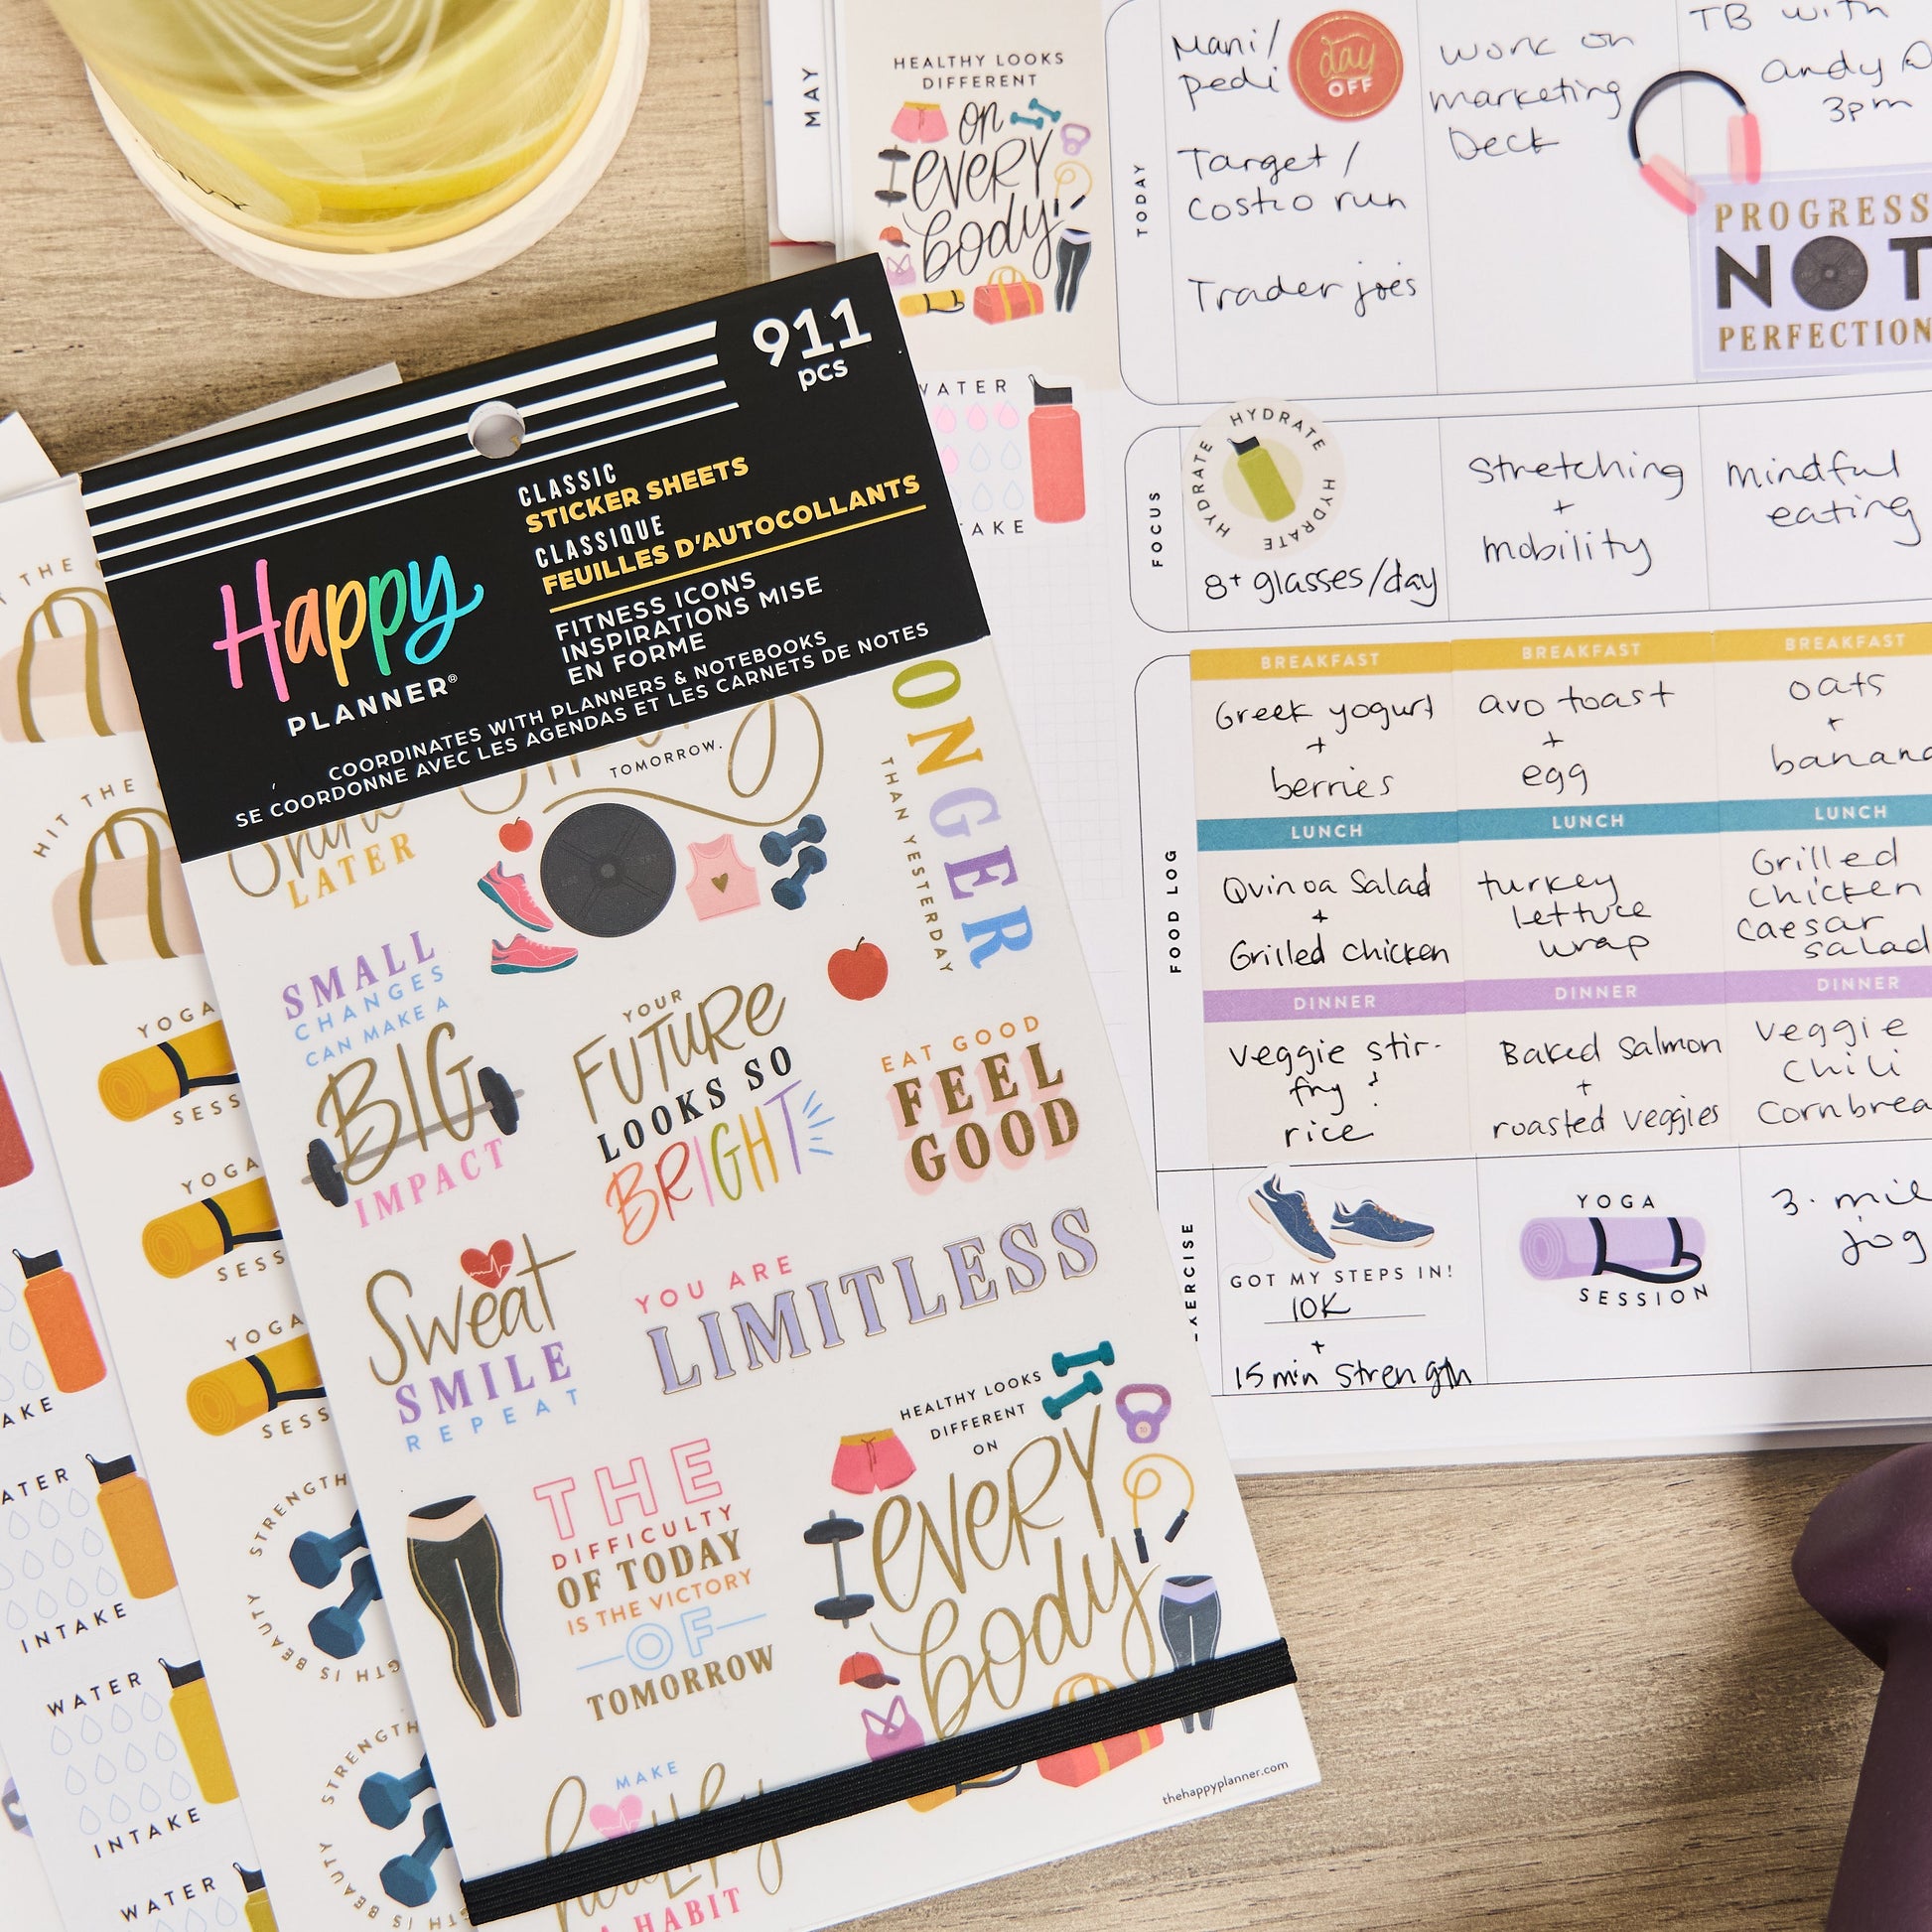 911
pcs
CLASSIC
STICKER SHEETS
CLASSIQUE
FEUILLES D'AUTOCOLLANTS
FITNESS ICONS
INSPIRATIONS MISE
EN FORME
Happy
PLANNER®
COORDINATES WITH PLANNERS & NOTEBOOKS
SE COORDONNE AVEC LES AGENDAS ET LES CARNETS DE NOTES
TOMORROW.
LATER
ONGER
THAN YESTERDAY
SMALL
CHANGES
CAN MAKE A
BIG
IMPACT
YOUR
FUTURE
LOOKS SO
BRIGHT
EAT GOOD
FEEL
GOOD
Sweat
SMILE
REPEAT
YOU ARE
LIMITLESS
THE
DIFFICULTY
OF TODAY
IS THE VICTORY
OF
TOMORROW
HEALTHY LOOKS
DIFFERENT
ON
EVERY
body
MAKE
A HABIT
thehappyplanner.com
THE
HIT THE
YOGA
SESS
YOGA
SESS
YOGA
SESS
STRENGTH
IS BEAUTY
STRENGTH
IS BEAUTY
AKE
ATER
INTAKE
WATER
INTAKE
WATER
MAY
HEALTHY LOOKS
DIFFERENT
on
EVERY
body
WATER
TAKE
TODAY
Mani/
pedi
day
OFF
Target /
Costco run
Trader joe's
Work on
marketing
Deck
TB with
andy @
3pm
PROGRESS
NOT
PERFECTION
FOCUS
HYDRATE HYDRATE HYDRATE
8+ glasses/day
Stretching
+
mobility
mindful
eating
FOOD LOG
BREAKFAST
Greek yogurt
+
berries
LUNCH
Quinoa Salad
+
Grilled Chicken
DINNER
Veggie stir-
fry &
rice
BREAKFAST
avo toast
+
egg
LUNCH
turkey
lettuce
wrap
DINNER
Baked Salmon
+
roasted veggies
BREAKFAST
oats
+
banana
LUNCH
Grilled
Chicken
Caesar
salad
DINNER
Veggie
Chili
Cornbrea
XERCISE
GOT MY STEPS IN!
10K
+
15 min Strength
YOGA
SESSION
3. mil
jog